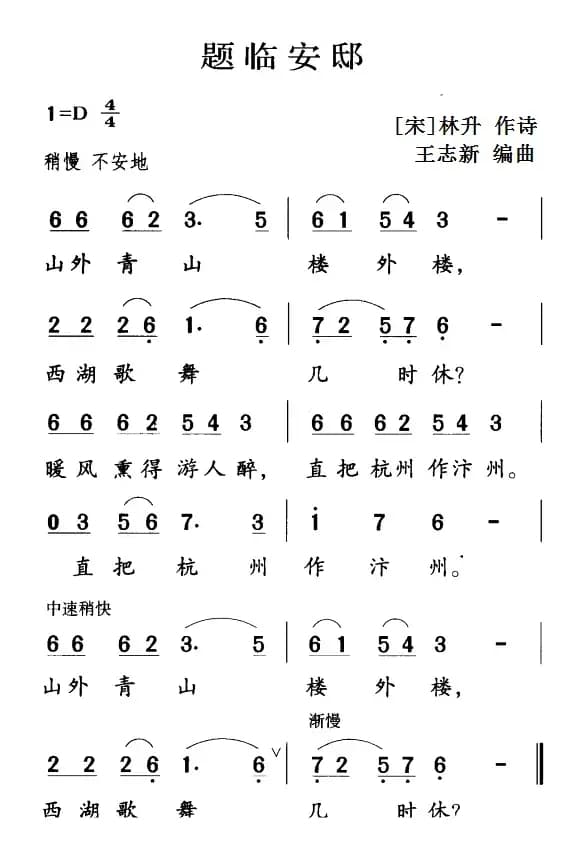 题临安邸
1=D 4/4
[宋]林升 作诗
稍慢 不安地
王志新 编曲
6 6 6 2 3. 5 | 6 1 5 4 3 -
山外青山 楼外楼，
2 2 2 6̣ 1. 6̣ | 7̣ 2 5̣ 7̣ 6̣ -
西湖歌舞 几时休？
6 6 6 2 5 4 3 | 6 6 6 2 5 4 3
暖风熏得游人醉，直把杭州作汴州。
0 3 5 6 7. 3 | 1̇ 7 6 -
直把杭州作汴州。
中速稍快
6 6 6 2 3. 5 | 6 1 5 4 3 -
山外青山 楼外楼，
渐慢
2 2 2 6̣ 1. 6̣ ∨ | 7̣ 2 5̣ 7̣ 6̣ - ‖
西湖歌舞 几时休？